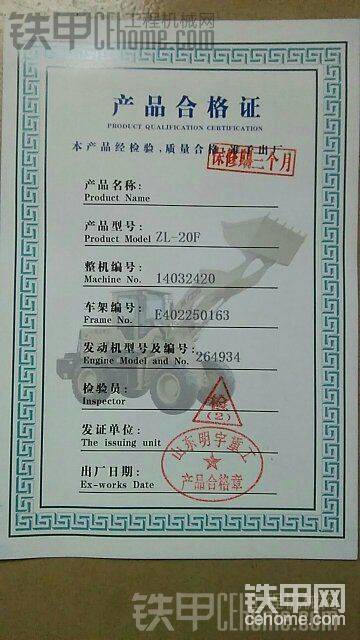 铁甲 工程机械网
CEhome.com
产品合格证
PRODUCT QUALIFICATION CERTIFICATION
本产品经检验,质量合格,准予出厂
保修期三个月
产品名称:
Product Name
产品型号:
Product Model ZL-20F
整机编号:
Machine No. 14032420
车架编号:
Frame No. E402250163
发动机型号及编号:
Engine Model and No. 264934
检验员:
Inspector
检
(2)
发证单位:
The issuing unit
山东明宇重工
产品合格章
出厂日期:
Ex-works Date
铁甲 工程机械网
CEhome.com
铁甲网
cehome.com